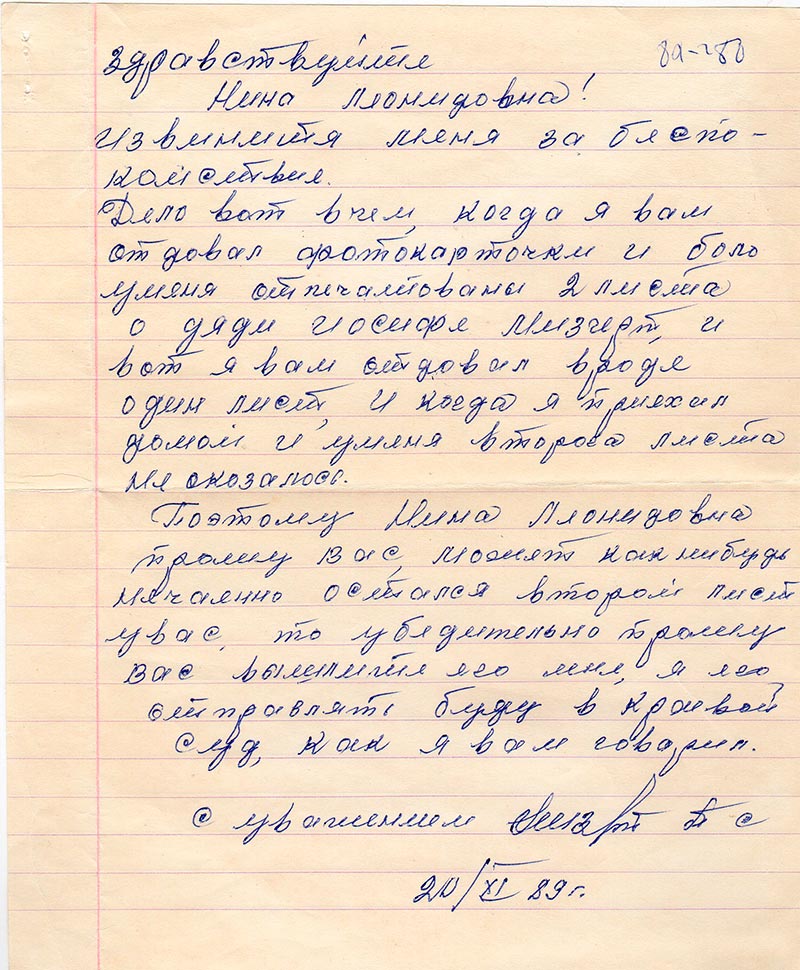 здравствуйте
Нина Леонидовна!
Извините меня за беспо-
койствие.
Дело вот в чем, когда я вам
отдовал фотокарточки и было
уменя отпечатованы 2 листа
о дяди Иосифе Мизчерт, и
вот я вам отдовал вроде
один лист, и когда я приехал
домой и уменя второго листа
не оказалось.
Поэтому Нина Леонидовна
прошу вас, может какнибудь
нечаенно остался второй лист
увас, то убедительно прошу
вас вышлите его мне, я его
отправлять буду в краевой
суд, как я вам говорил.
С уважением
20/XI 89г.